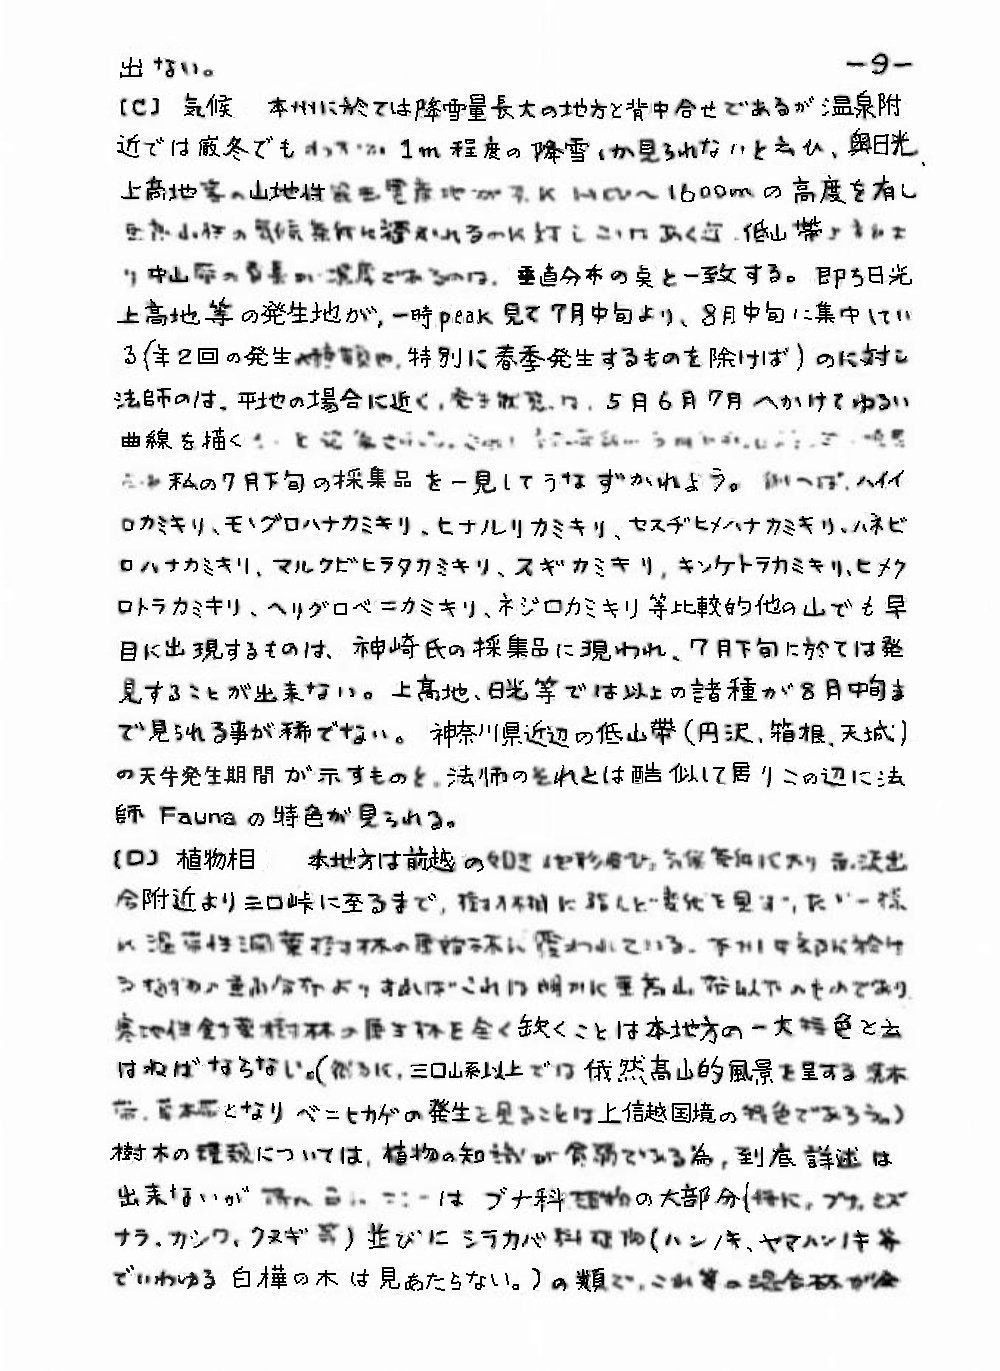 出ない。
-9-
〔C〕 気候 本州に於ては降雪量長大の地方と背中合せであるが温泉附
近では厳冬でも 1m程度の降雪しか見られないと云ひ、奥日光、
上高地 の山地性 1600mの高度を有し
の気候 低山帯
り中山 の は、垂直分布の点と一致する。即ち日光
上高地等の発生地が、一時peak見て7月中旬より、8月中旬に集中してい
る(年2回の発生 特別に春季発生するものを除けば)のに対し
法師のは、平地の場合に近く、発生状態は、5月6月7月へかけてゆるい
曲線を描く
私の7月下旬の採集品を一見してうなずかれよう。例へば、ハイイ
ロカミキリ、モヽグロハナカミキリ、ヒナルリカミキリ、セスヂヒメハナカミキリ、ハネビ
ロハナカミキリ、マルクビヒラタカミキリ、スギカミキリ、キンケトラカミキリ、ヒメク
ロトラカミキリ、ヘリグロベニカミキリ、ネジロカミキリ等比較的他の山でも早
目に出現するものは、神崎氏の採集品に現われ、7月下旬に於ては発
見することが出来ない。上高地、日光等では以上の諸種が8月中旬ま
で見られる事が稀でない。神奈川県近辺の低山帯(丹沢、箱根、天城)
の天牛発生期間が示すものと、法師のそれとは酷似して居りこの辺に法
師 Faunaの特色が見られる。
〔D〕 植物相 本地方は前越の如き地形及び、気候条件により 沢出
合附近より三口峠に至るまで、樹林相に殆んど変化を見ず、たゞ一様
に温帯性濶葉樹林の原始林に覆われている。下川 に於け
る の垂直分布よりすればこれは明かに亜高山帯以下のものであり、
寒地性針葉樹林の原生林を全く欠くことは本地方の一大特色と云
はねばならない。(然るに、三口山系以上では俄然高山的風景を呈する灌木
帯、草本帯となりベニヒカゲの発生を見ることは上信越国境の特色であろう。)
樹木の種類については、植物の知識が貧弱である為、到底詳述は
出来ないが はブナ科植物の大部分(特に、ブナ、ミズ
ナラ、カシワ、クヌギ等)並びにシラカバ科植物(ハンノキ、ヤマハンノキ等
でいわゆる白樺の木は見あたらない。)の類で、これ等の混合林が全